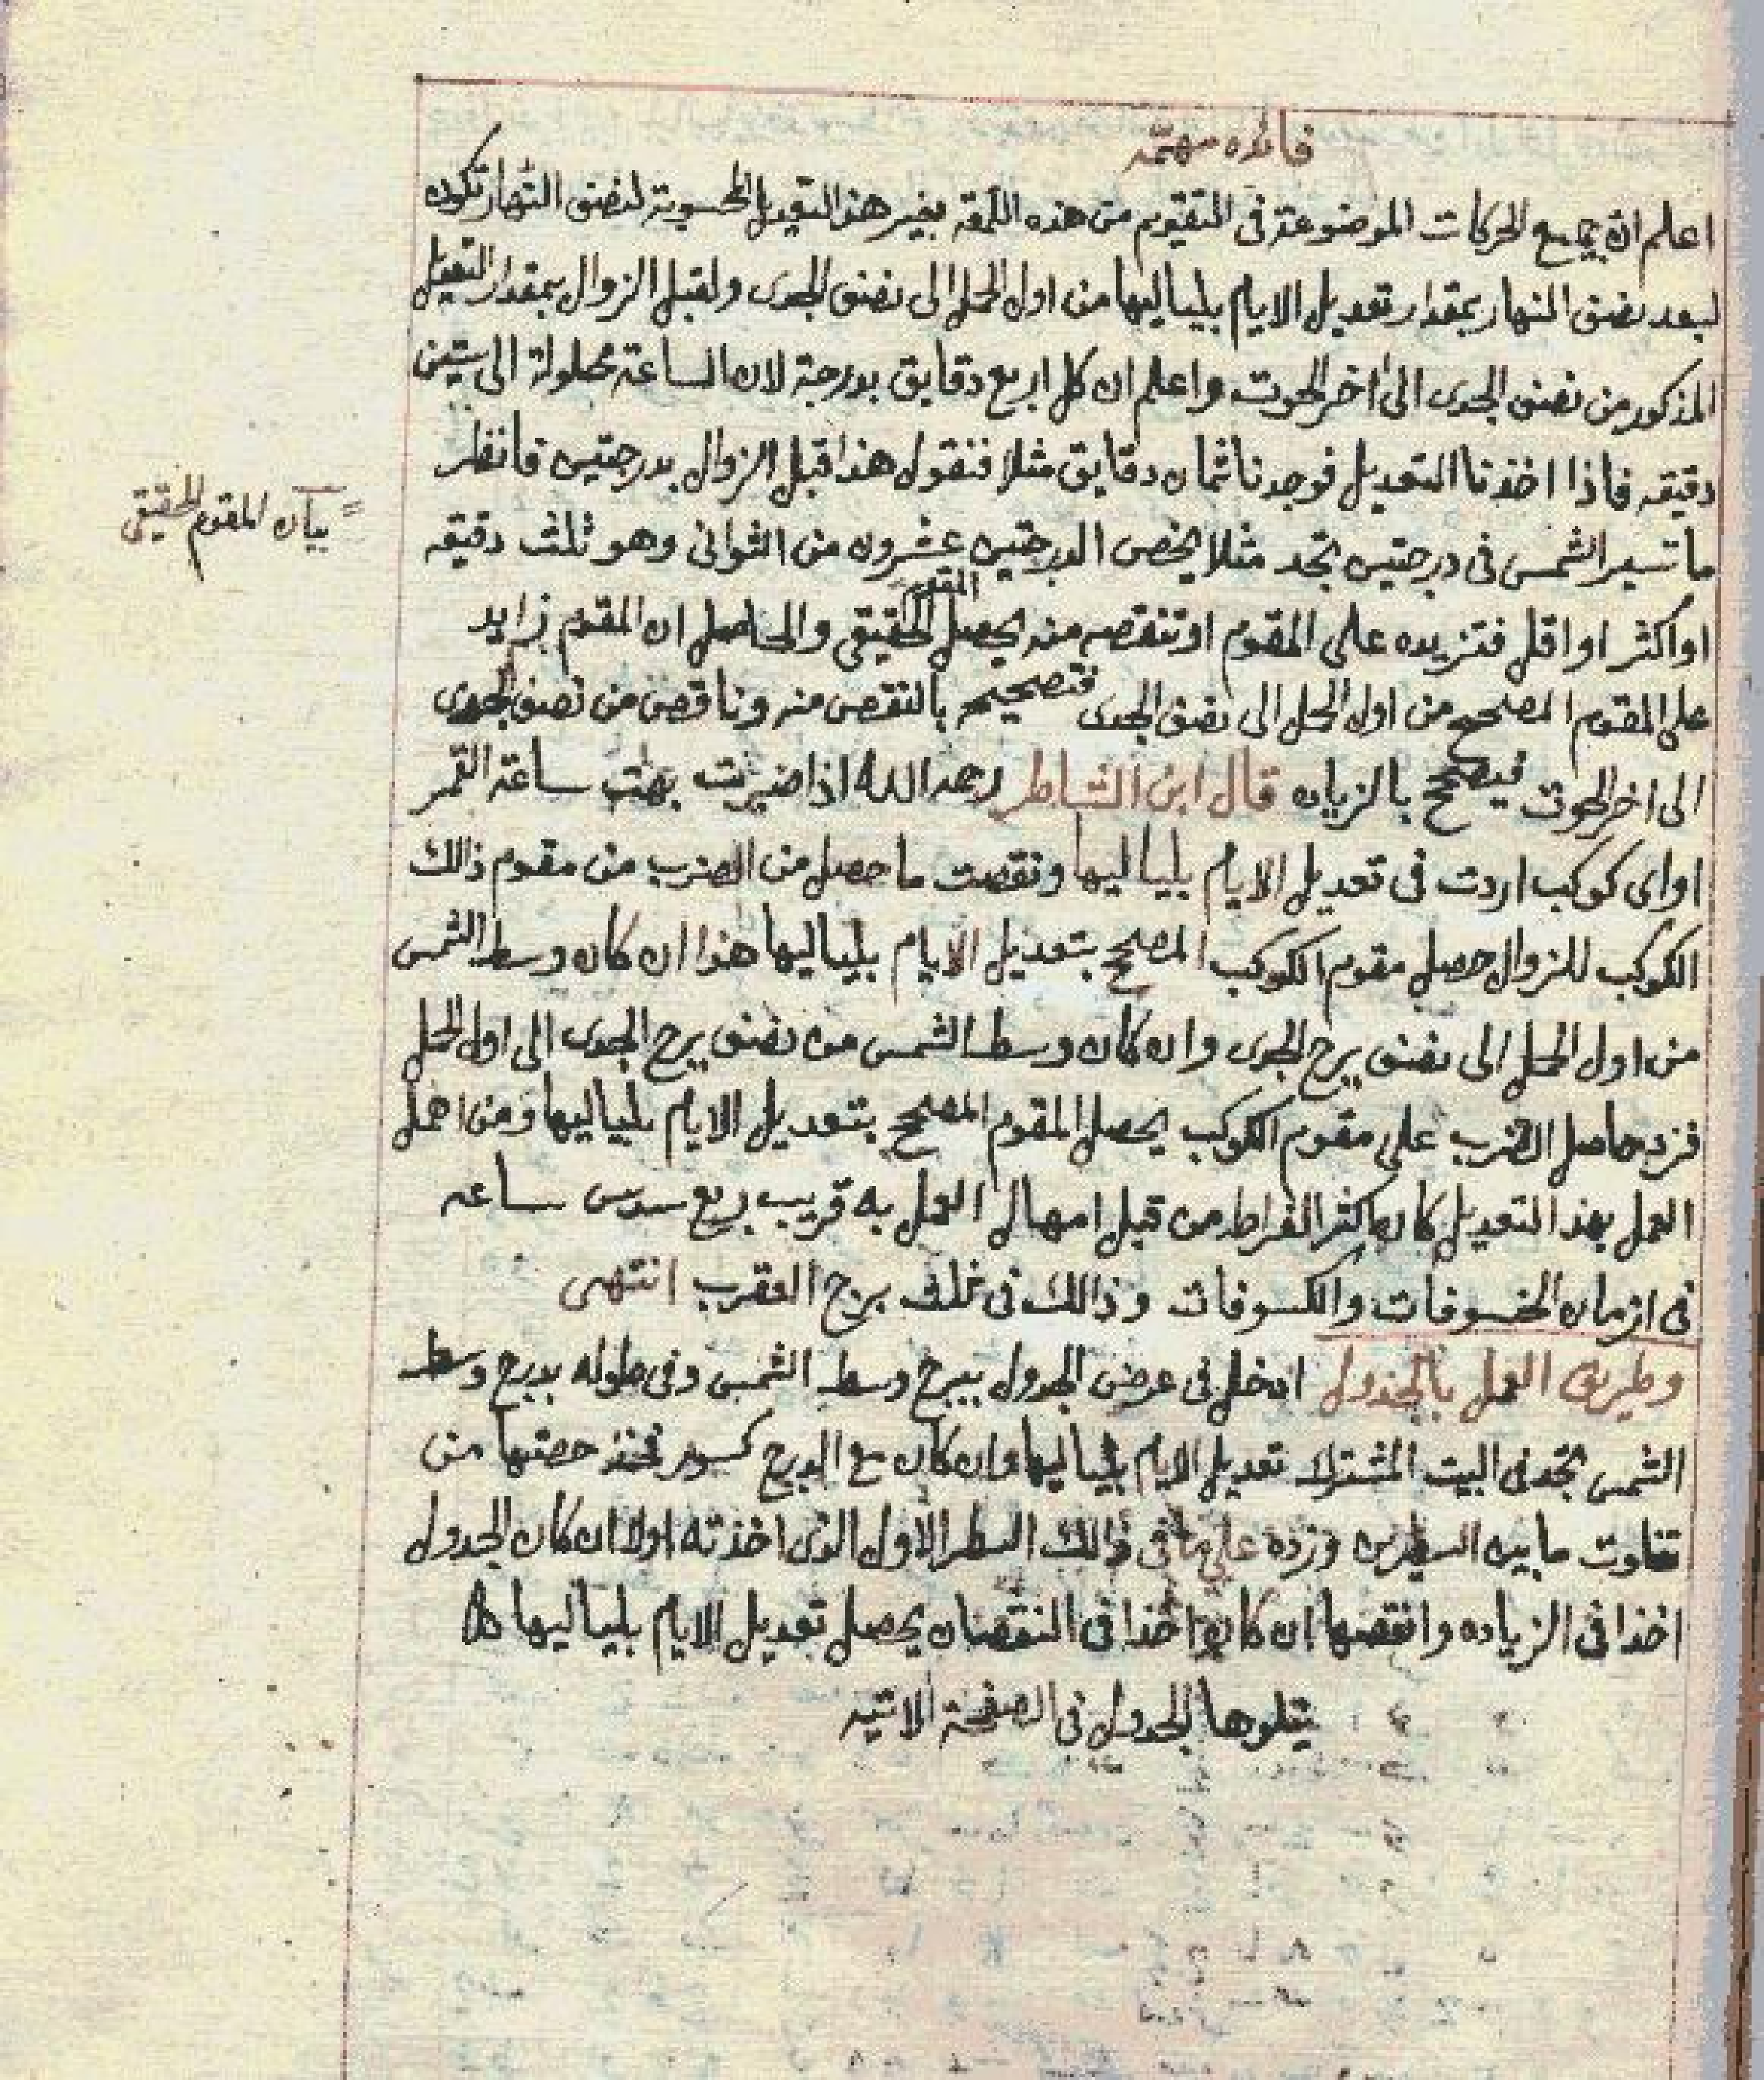 فائده مهمّه
اعلم ان جميع الحركات الموضوعة فى التقويم من هذه اللمعة بغير هذا التعديل المحسوبة لنصف النهار تكون
لبعد نصف النهار بمقدار تعديل الايام بلياليها من اول الحمل الى نصف الجدى ولقبل الزوال بمقدار التعديل
المذكور من نصف الجدى الى اخر الحوت واعلم ان كل اربع دقايق بدرجة لان الساعة محلولة الى ستين
دقيقه فاذا اخذنا التعديل فوجدنا ثمان دقايق مثلا فنقول هذا قبل الزوال بدرجتين فانظر
ما تسير الشمس فى درجتين تجد مثلا يخص الدرجتين عشرون من الثوانى وهو ثلث دقيقه
او اكثر او اقل فتزيده على المقوم او تنقصه منه يحصل المقوم الحقيقى والحاصل ان المقوم زايد
على المقوم المصحح من اول الحمل الى نصف الجدى فتصحيحه بالنقص منه وناقص من نصف الجدى
الى اخر الحوت فيصحح بالزياده قال ابن الشاطر رحمه الله اذا ضربت بهت ساعة القمر
او اى كوكب اردت فى تعديل الايام بلياليها ونقصت ما حصل من الضرب من مقوم ذالك
الكوكب للزوال حصل مقوم الكوكب المصحح بتعديل الايام بلياليها هذا ان كان وسط الشمس
من اول الحمل الى نصف برج الجدى وان كان وسط الشمس من نصف برج الجدى الى اول الحمل
فزد حاصل الضرب على مقوم الكوكب يحصل المقوم المصحح بتعديل الايام بلياليها ومن اهمل
العمل بهذا التعديل كان اكثر الغراط من قبل امهال العمل به قريب ربع سدس ساعه
فى ازمان الخسوفات والكسوفات وذالك فى برج العقرب انتهى
وطريق العمل بالجدول ادخل فى عرض الجدول ببرج وسط الشمس وفى طوله بدرج وسط
الشمس تجد فى البيت المشترك تعديل الايام بلياليها وان كان مع الدرج كسور فخذ حصتها من
تفاوت ما بين السطرين وزده على ما فى ذالك السطر الاول الذى اخذته اولا ان كان الجدول
اخذا فى الزياده وانقصها ان كان اخذا فى النقصان يحصل تعديل الايام بلياليها اه
يتلوها الجدول فى الصفحة الاتيه
بيان المقوم الحقيقى